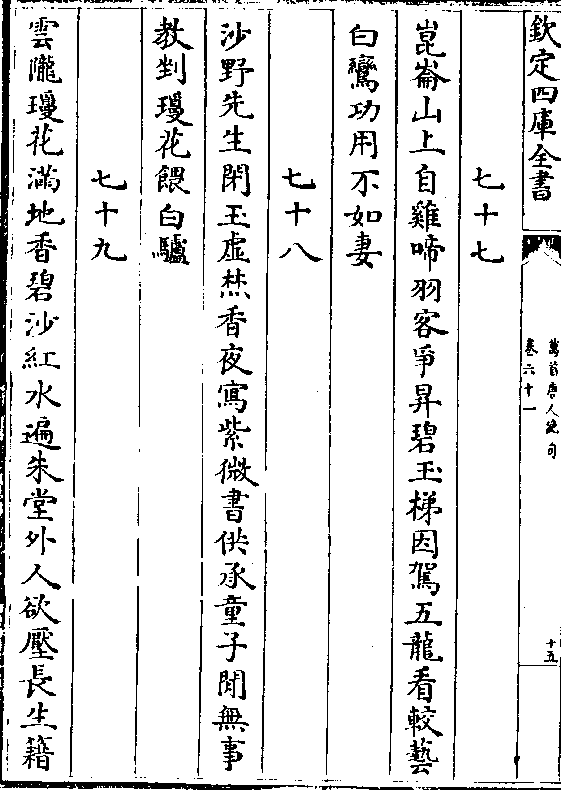 欽定四庫全書
萬首唐人絶句
卷六十一
十五
七十七
崑崙山上自雞啼羽客爭昇碧玉梯因駕五龍看較藝
白鸞功用不如妻
七十八
沙野先生閉玉虛焚香夜寫紫微書供承童子閒無事
教剉瓊花餵白驢
七十九
雲隴瓊花滿地香碧沙紅水遍朱堂外人欲壓長生籍